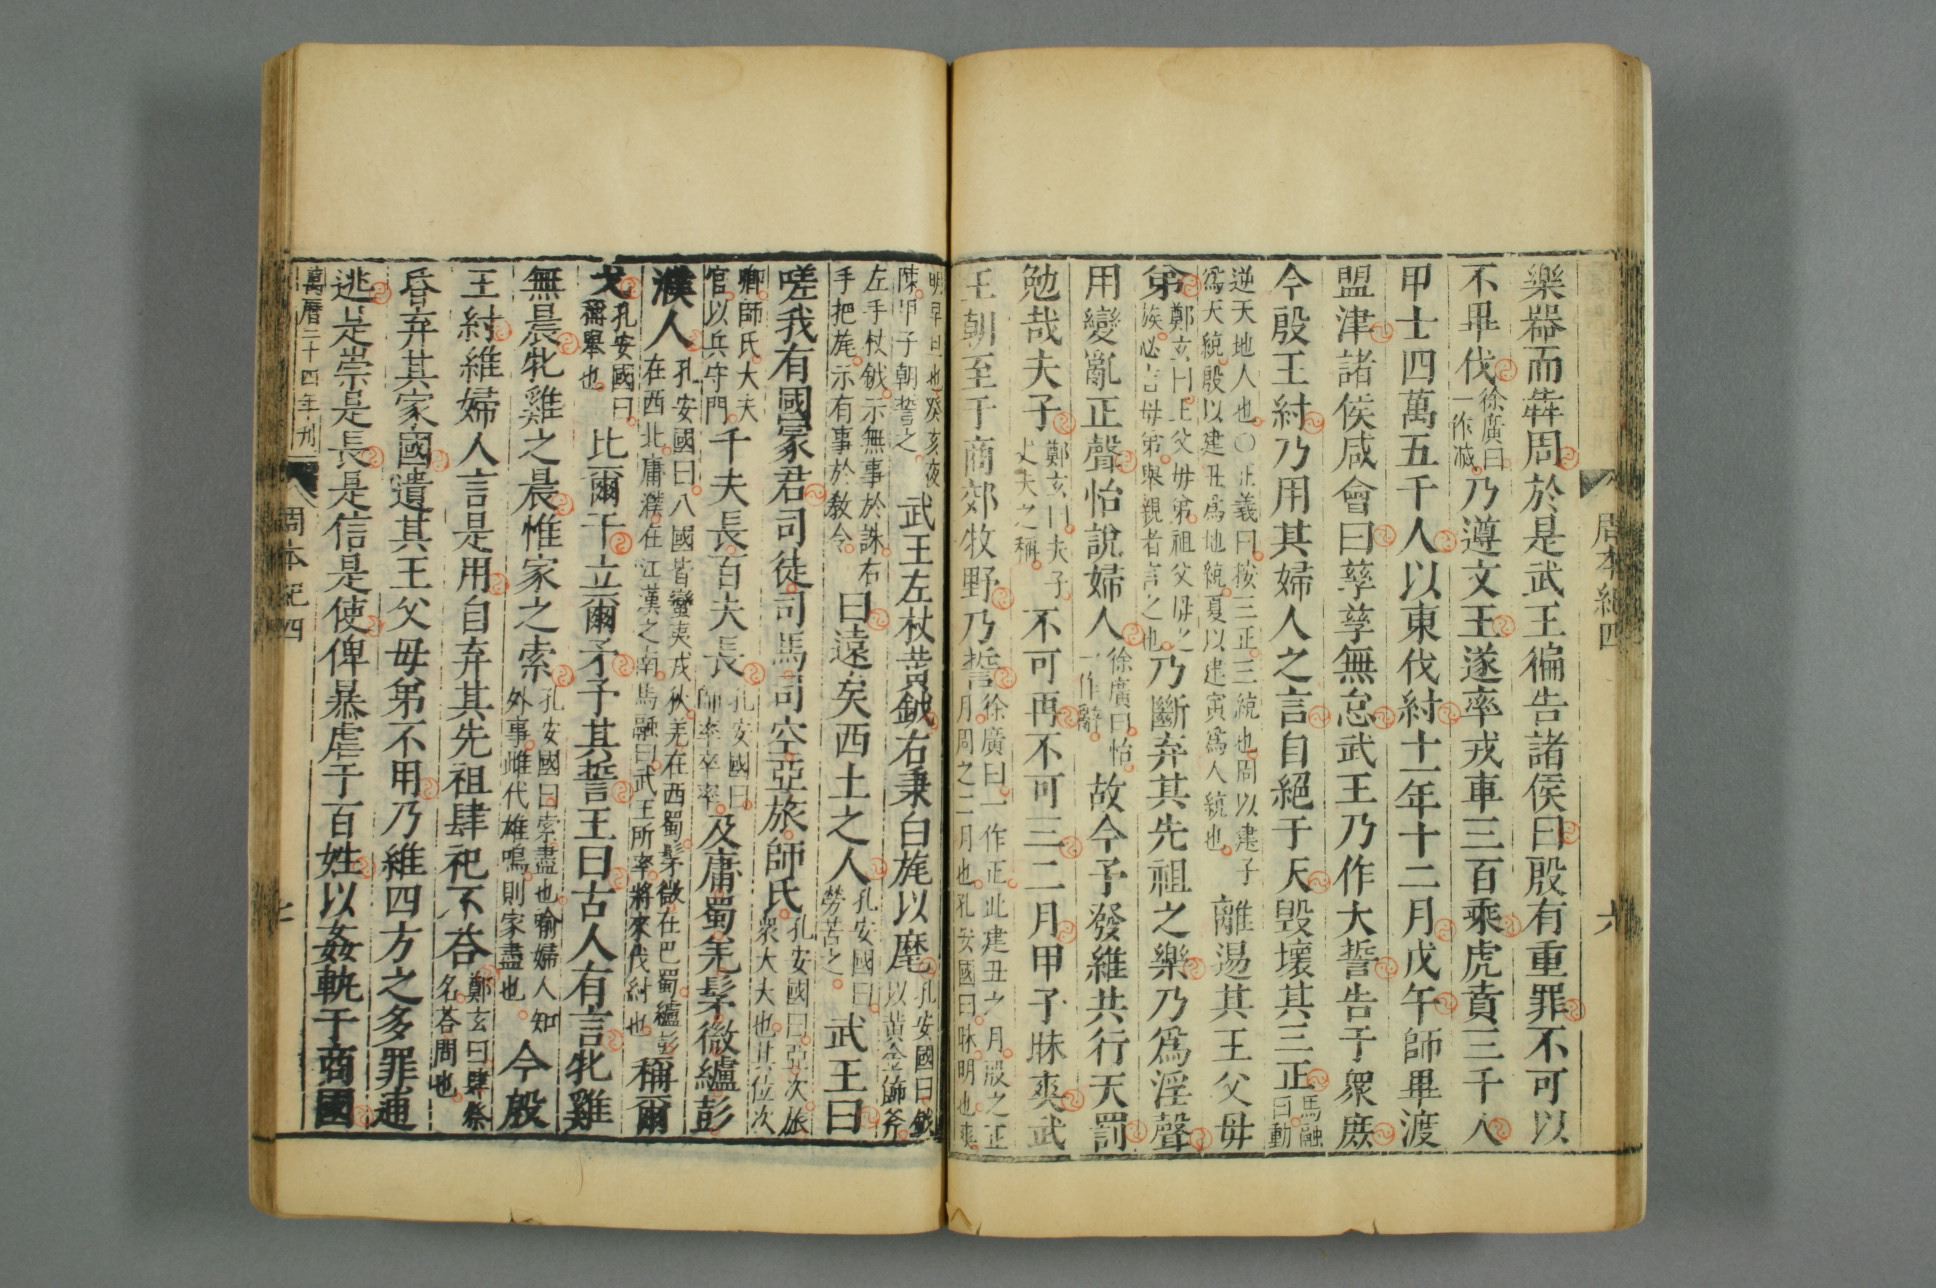 周本紀四
六
樂器而犇周於是武王徧告諸侯曰殷有重罪不可以
不畢伐徐廣曰一作滅乃遵文王遂率戎車三百乘虎賁三千人
甲士四萬五千人以東伐紂十一年十二月戊午師畢渡
盟津諸侯咸會曰孳孳無怠武王乃作大誓告于衆庶
今殷王紂乃用其婦人之言自絕于天毀壞其三正馬融曰動
逆天地人也○正義曰按三正三統也周以建子爲天統殷以建丑爲地統夏以建寅爲人統也離逷其王父母
弟鄭玄曰王父母弟祖父母之族必言母弟舉親者言之也乃斷弃其先祖之樂乃爲淫聲
用變亂正聲怡說婦人徐廣曰怡一作辭故今予發維共行天罰
勉哉夫子鄭玄曰夫子丈夫之稱不可再不可三二月甲子昧爽武
王朝至于商郊牧野乃誓徐廣曰一作正此建丑之月殷之正月周之二月也孔安國曰昧明也爽
明早旦也癸亥夜陳甲子朝誓之武王左杖黃鉞右秉白旄以麾孔安國曰鉞以黃金飾斧
左手杖鉞示無事於誅右手把旄示有事於敎令曰遠矣西土之人孔安國曰勞苦之武王曰
嗟我有國冢君司徒司馬司空亞旅師氏孔安國曰亞次旅衆大夫也其位次
卿師氏大夫官以兵守門千夫長百夫長孔安國曰師率卒率及庸蜀羌髳微纑彭
濮人孔安國曰八國皆蠻夷戎狄羌在西蜀髳微在巴蜀纑彭在西北庸濮在江漢之南馬融曰武王所率將來伐紂也稱爾
戈孔安國曰稱舉也比爾干立爾矛予其誓王曰古人有言牝雞
無晨牝雞之晨惟家之索孔安國曰索盡也喻婦人知外事雌代雄鳴則家盡也今殷
王紂維婦人言是用自弃其先祖肆祀不荅鄭玄曰肆祭名荅問也
昏弃其家國遺其王父母弟不用乃維四方之多罪逋
逃是崇是長是信是使俾暴虐于百姓以姦軌于商國
萬曆二十四年刊
周本紀四
七